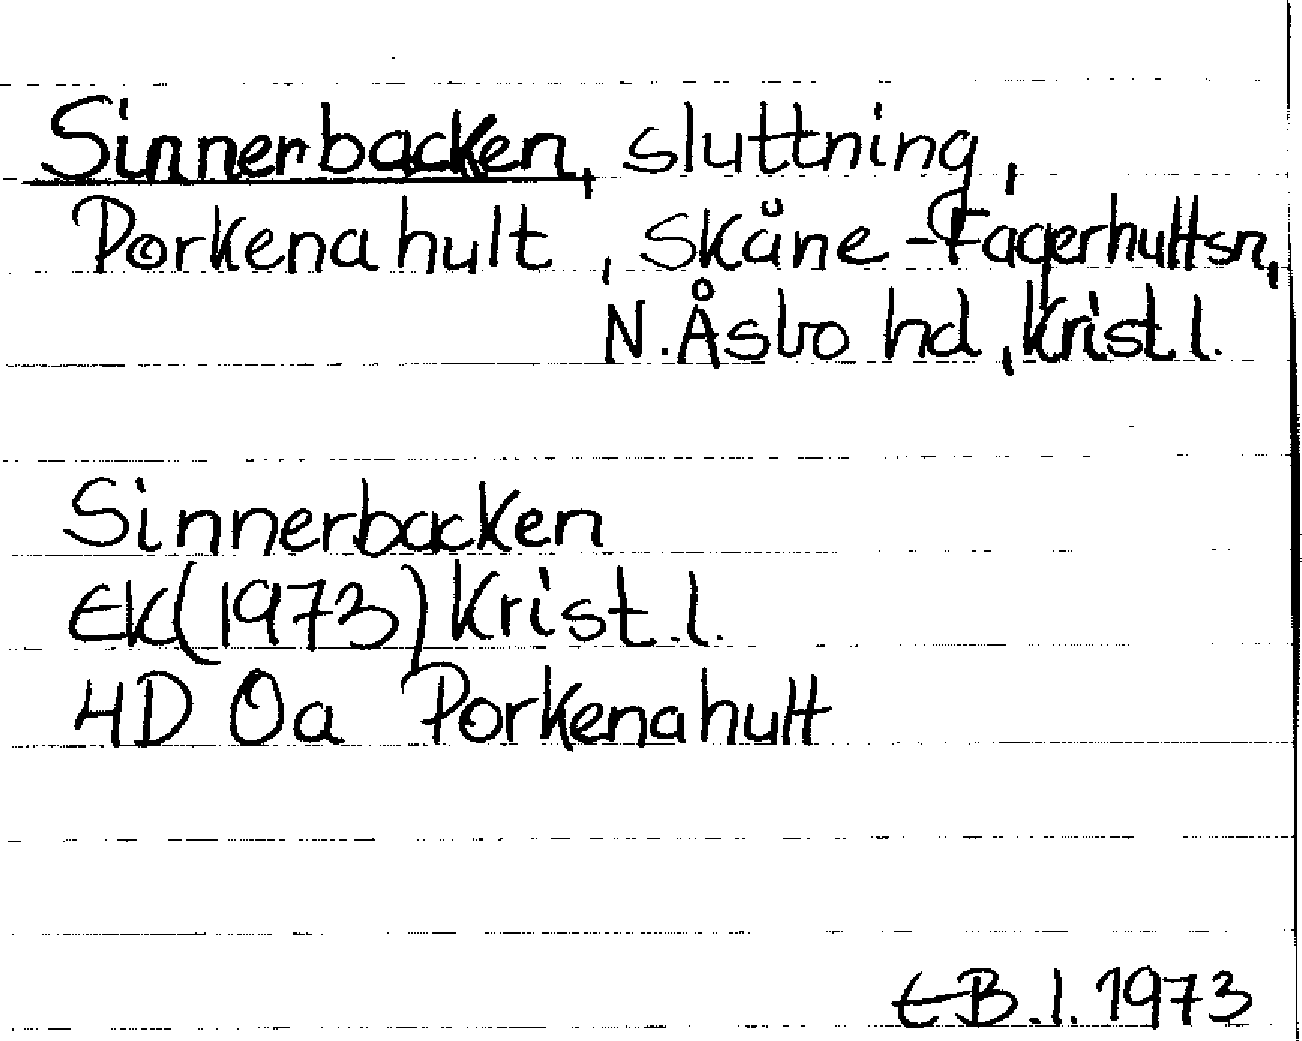 Sinnerbacken, sluttning,
Porkenahult, Skåne-Fagerhultsn,
N. Åsbo hd, Krist l.
Sinnerbacken
EK(1973) Krist. l.
4D 0a Porkenahult
EB. l. 1973